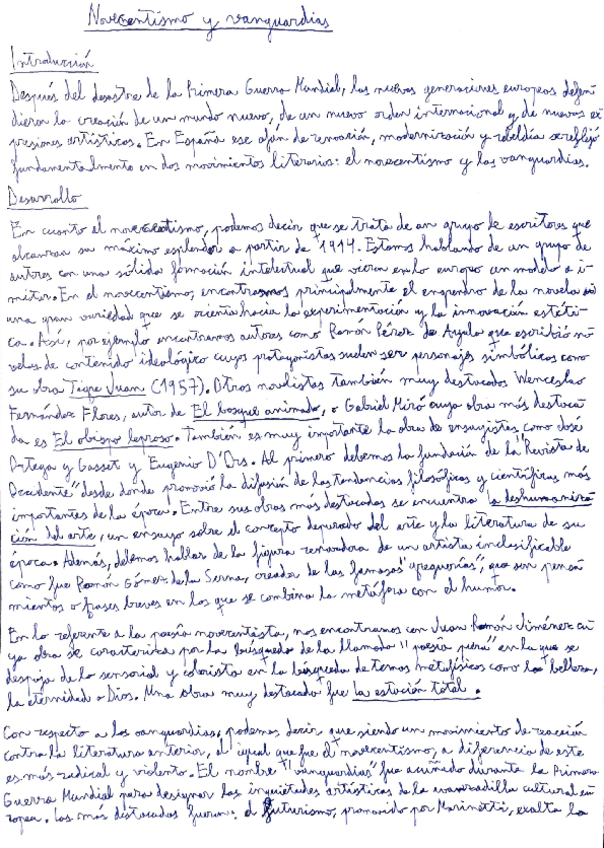 Novecentismo y vanguardias
Introducción
Después del desastre de la Primera Guerra Mundial, las nuevas generaciones europeas defen-
dieron la creación de un mundo nuevo, de un nuevo orden internacional y de nuevas ex
presiones artísticas. En España ese afán de renovación, modernización y rebeldía se reflejó
fundamentalmente en dos movimientos literarios: el novecentismo y las vanguardias.
Desarrollo
En cuanto el novecentismo, podemos decir que se trata de un grupo de escritores que
alcanzan su máximo esplendor a partir de 1914. Estamos hablando de un grupo de
autores con una sólida formación intelectual que vieron en lo europeo un modelo a i-
mitar. En el novecentismo, encontramos principalmente el engendro de la novela
una gran variedad que se orienta hacia la experimentación y la innovación estéti-
ca. Así, por ejemplo encontramos autores como Ramón Pérez de Ayala que escribió no
velas de contenido ideológico cuyos protagonistas suelen ser personajes simbólicos como
su obra Tigre Juan (1957). Otros novelistas también muy destacados Wenceslao
Fernández Flores, autor de El bosque animado, o Gabriel Miró cuya obra más destaca-
da es El obispo leproso. También es muy importante la obra de ensayistas como José
Ortega y Gasset y Eugenio D'Ors. Al primero debemos la fundación de la "Revista de
Occidente" desde donde promovió la difusión de las tendencias filosóficas y científicas más
importantes de la época. Entre sus obras más destacadas se encuentra la deshumaniza-
ción del arte, un ensayo sobre el concepto depurado del arte y la literatura de su
época. Además, debemos hablar de la figura renovadora de un artista inclasificable
como fue Ramón Gómez de la Serna, creador de las famosas "greguerías", que son pensa
mientos o frases breves en los que se combina la metáfora con el humor.
En lo referente a la poesía novecentista, nos encontramos con Juan Ramón Jiménez cu
ya obra se caracteriza por la búsqueda de la llamada "poesía pura" en la que se
despoja de lo sensorial y colorista en la búsqueda de temas metafísicos como la belleza,
la eternidad o Dios. Una obra muy destacada fue la estación total.
Con respecto a las vanguardias, podemos decir que siendo un movimiento de reacción
contra la literatura anterior, al igual que fue el novecentismo, a diferencia de este
es más radical y violento. El nombre "vanguardias" fue acuñado durante la Primera
Guerra Mundial para designar las inquietudes artísticas de la avanzadilla cultural eu
ropea. Las más destacadas fueron: el futurismo, promovido por Marinetti, exalta la